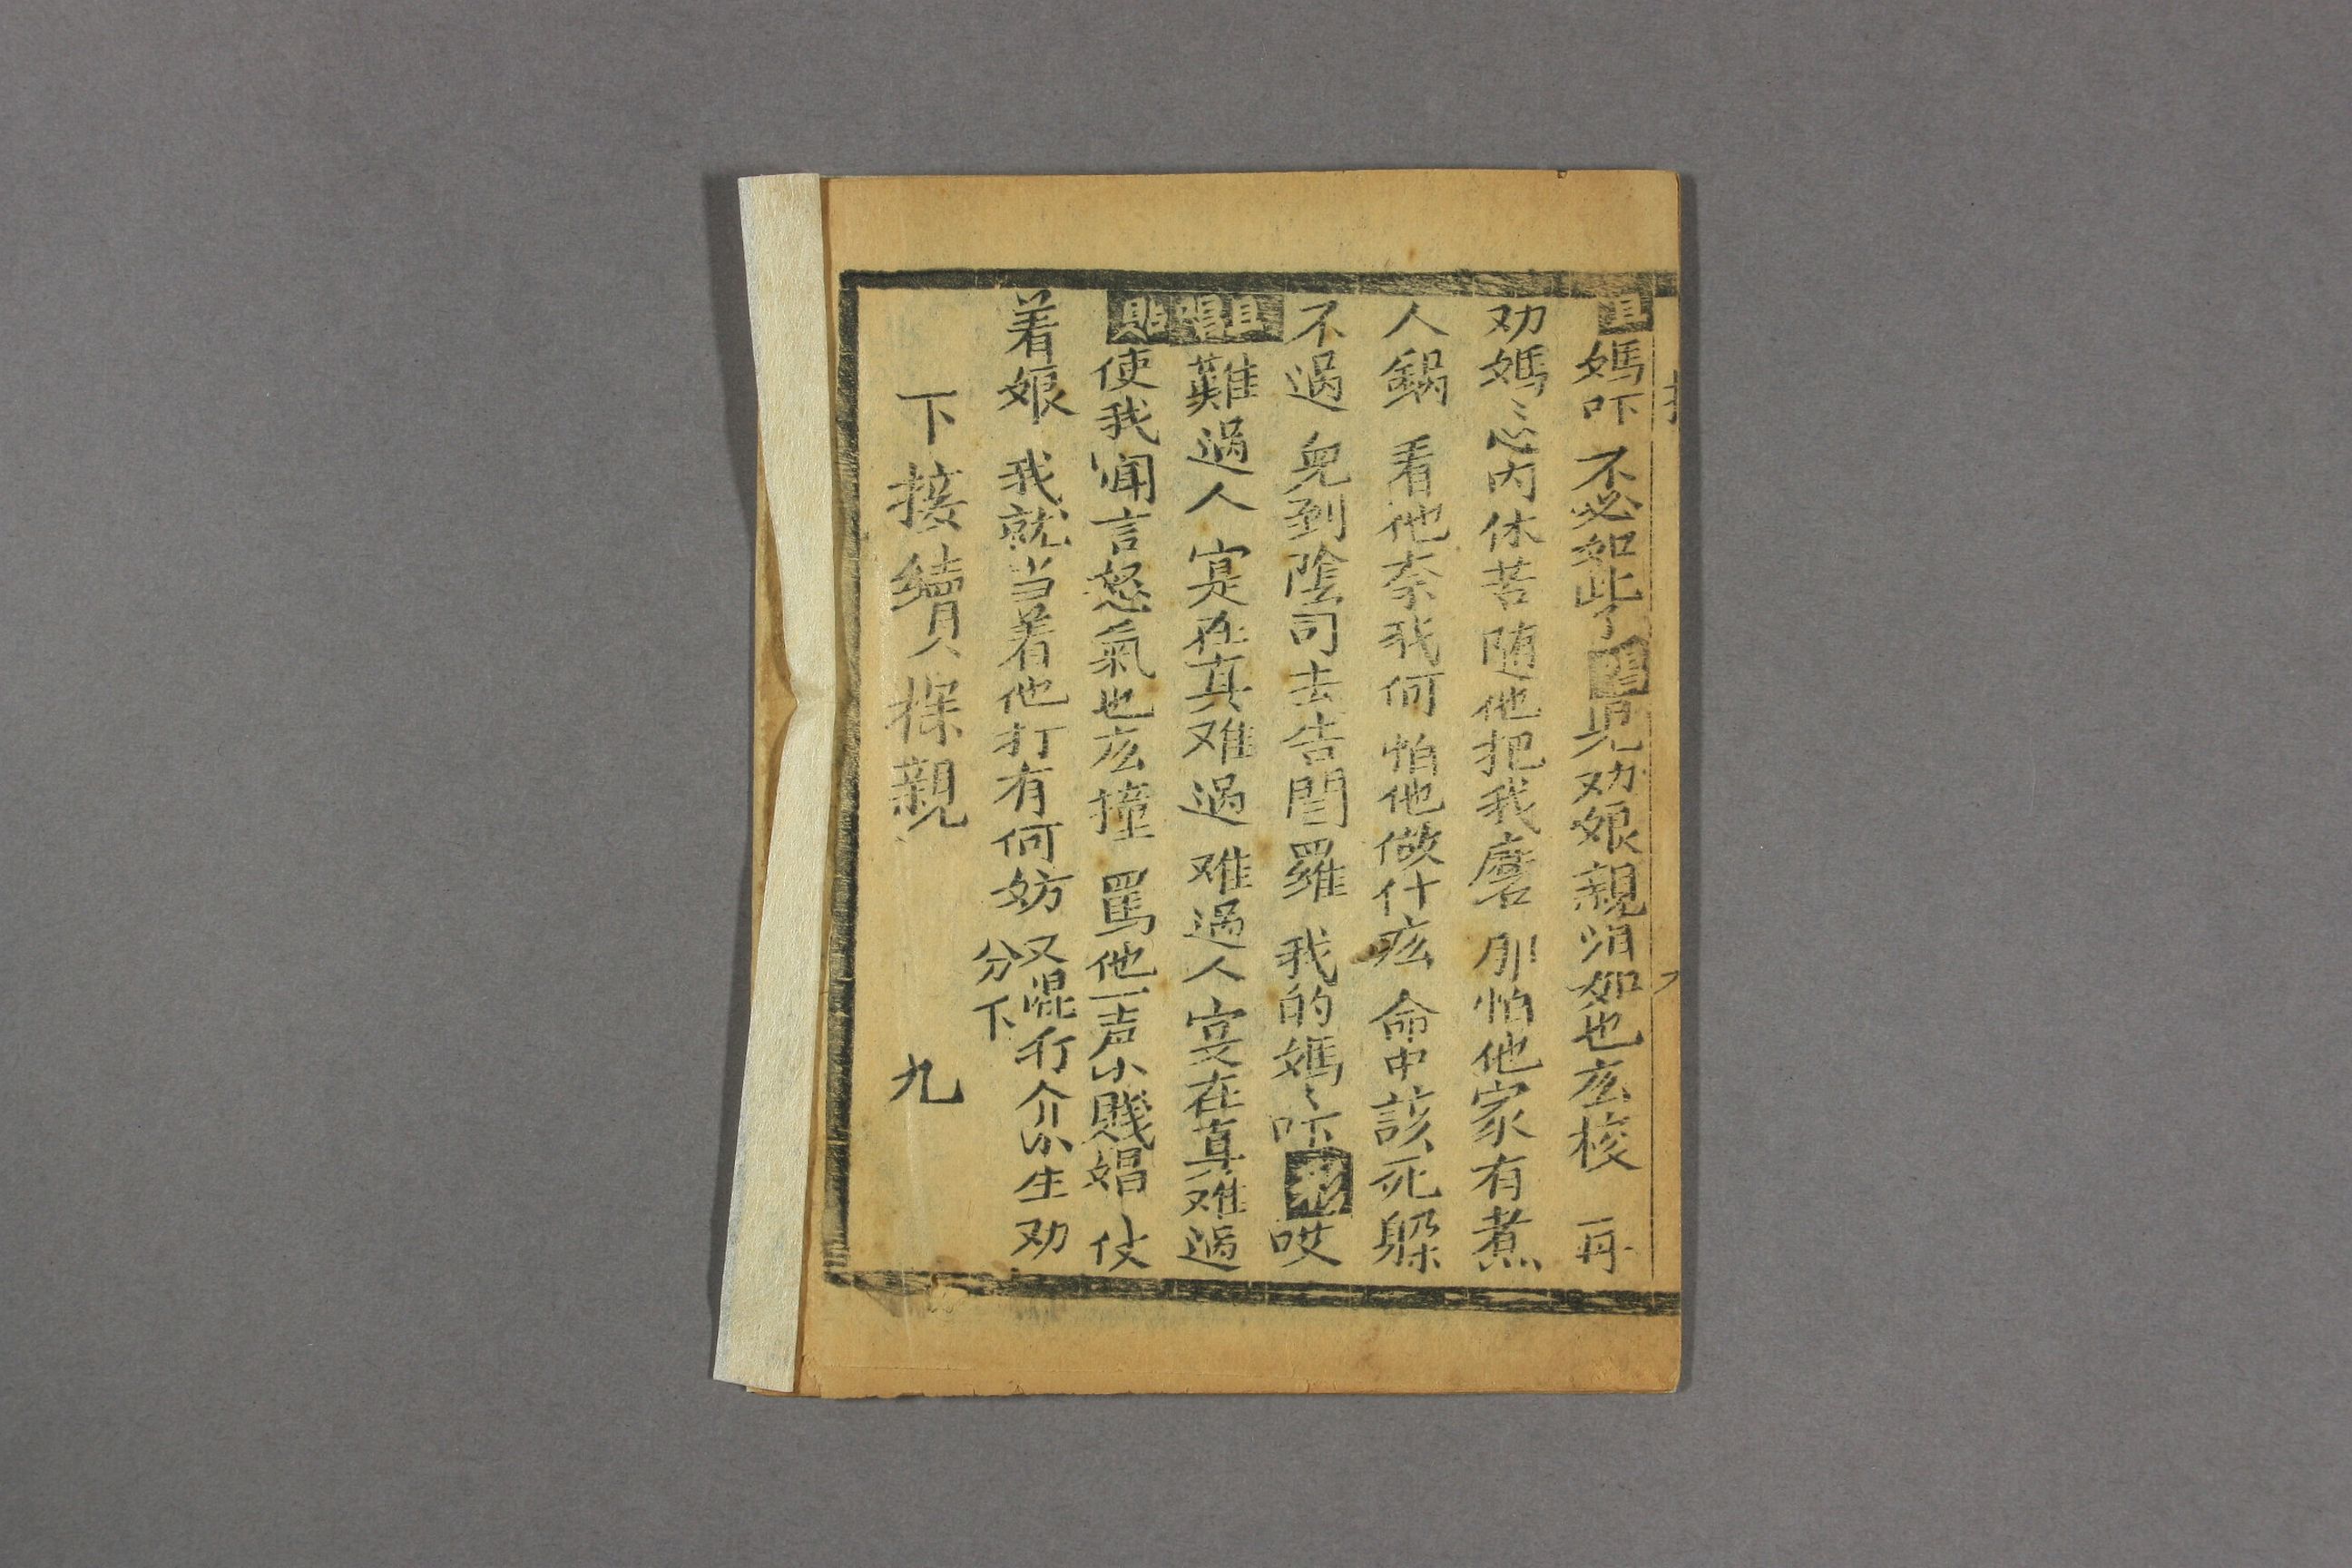 旦媽吓 不必如此了唱兒劝娘親湏如也庅梭 再
劝媽〻心内休苦 随他把我磨 那怕他家有煮
人鍋 看他奈我何 怕他做什庅 命中該死躱
不過 鬼到陰司去告閻羅 我的媽〻吓 哎
旦唱難過人 寔在真难過 难過人寔在真难過
貼使我闻言怒氣也庅撞 罵他一声小賤娼 仗
着娘 我就当着他打有何妨 又混打介小生劝
分下
下接續人探親 九